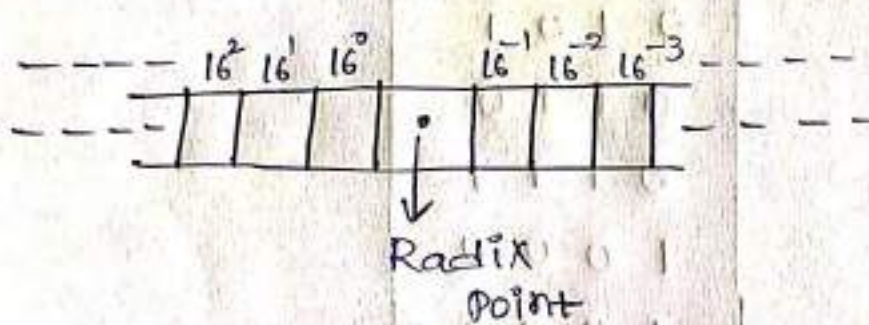 16² 16¹ 16⁰ 16⁻¹ 16⁻² 16⁻³
.
Radix
Point